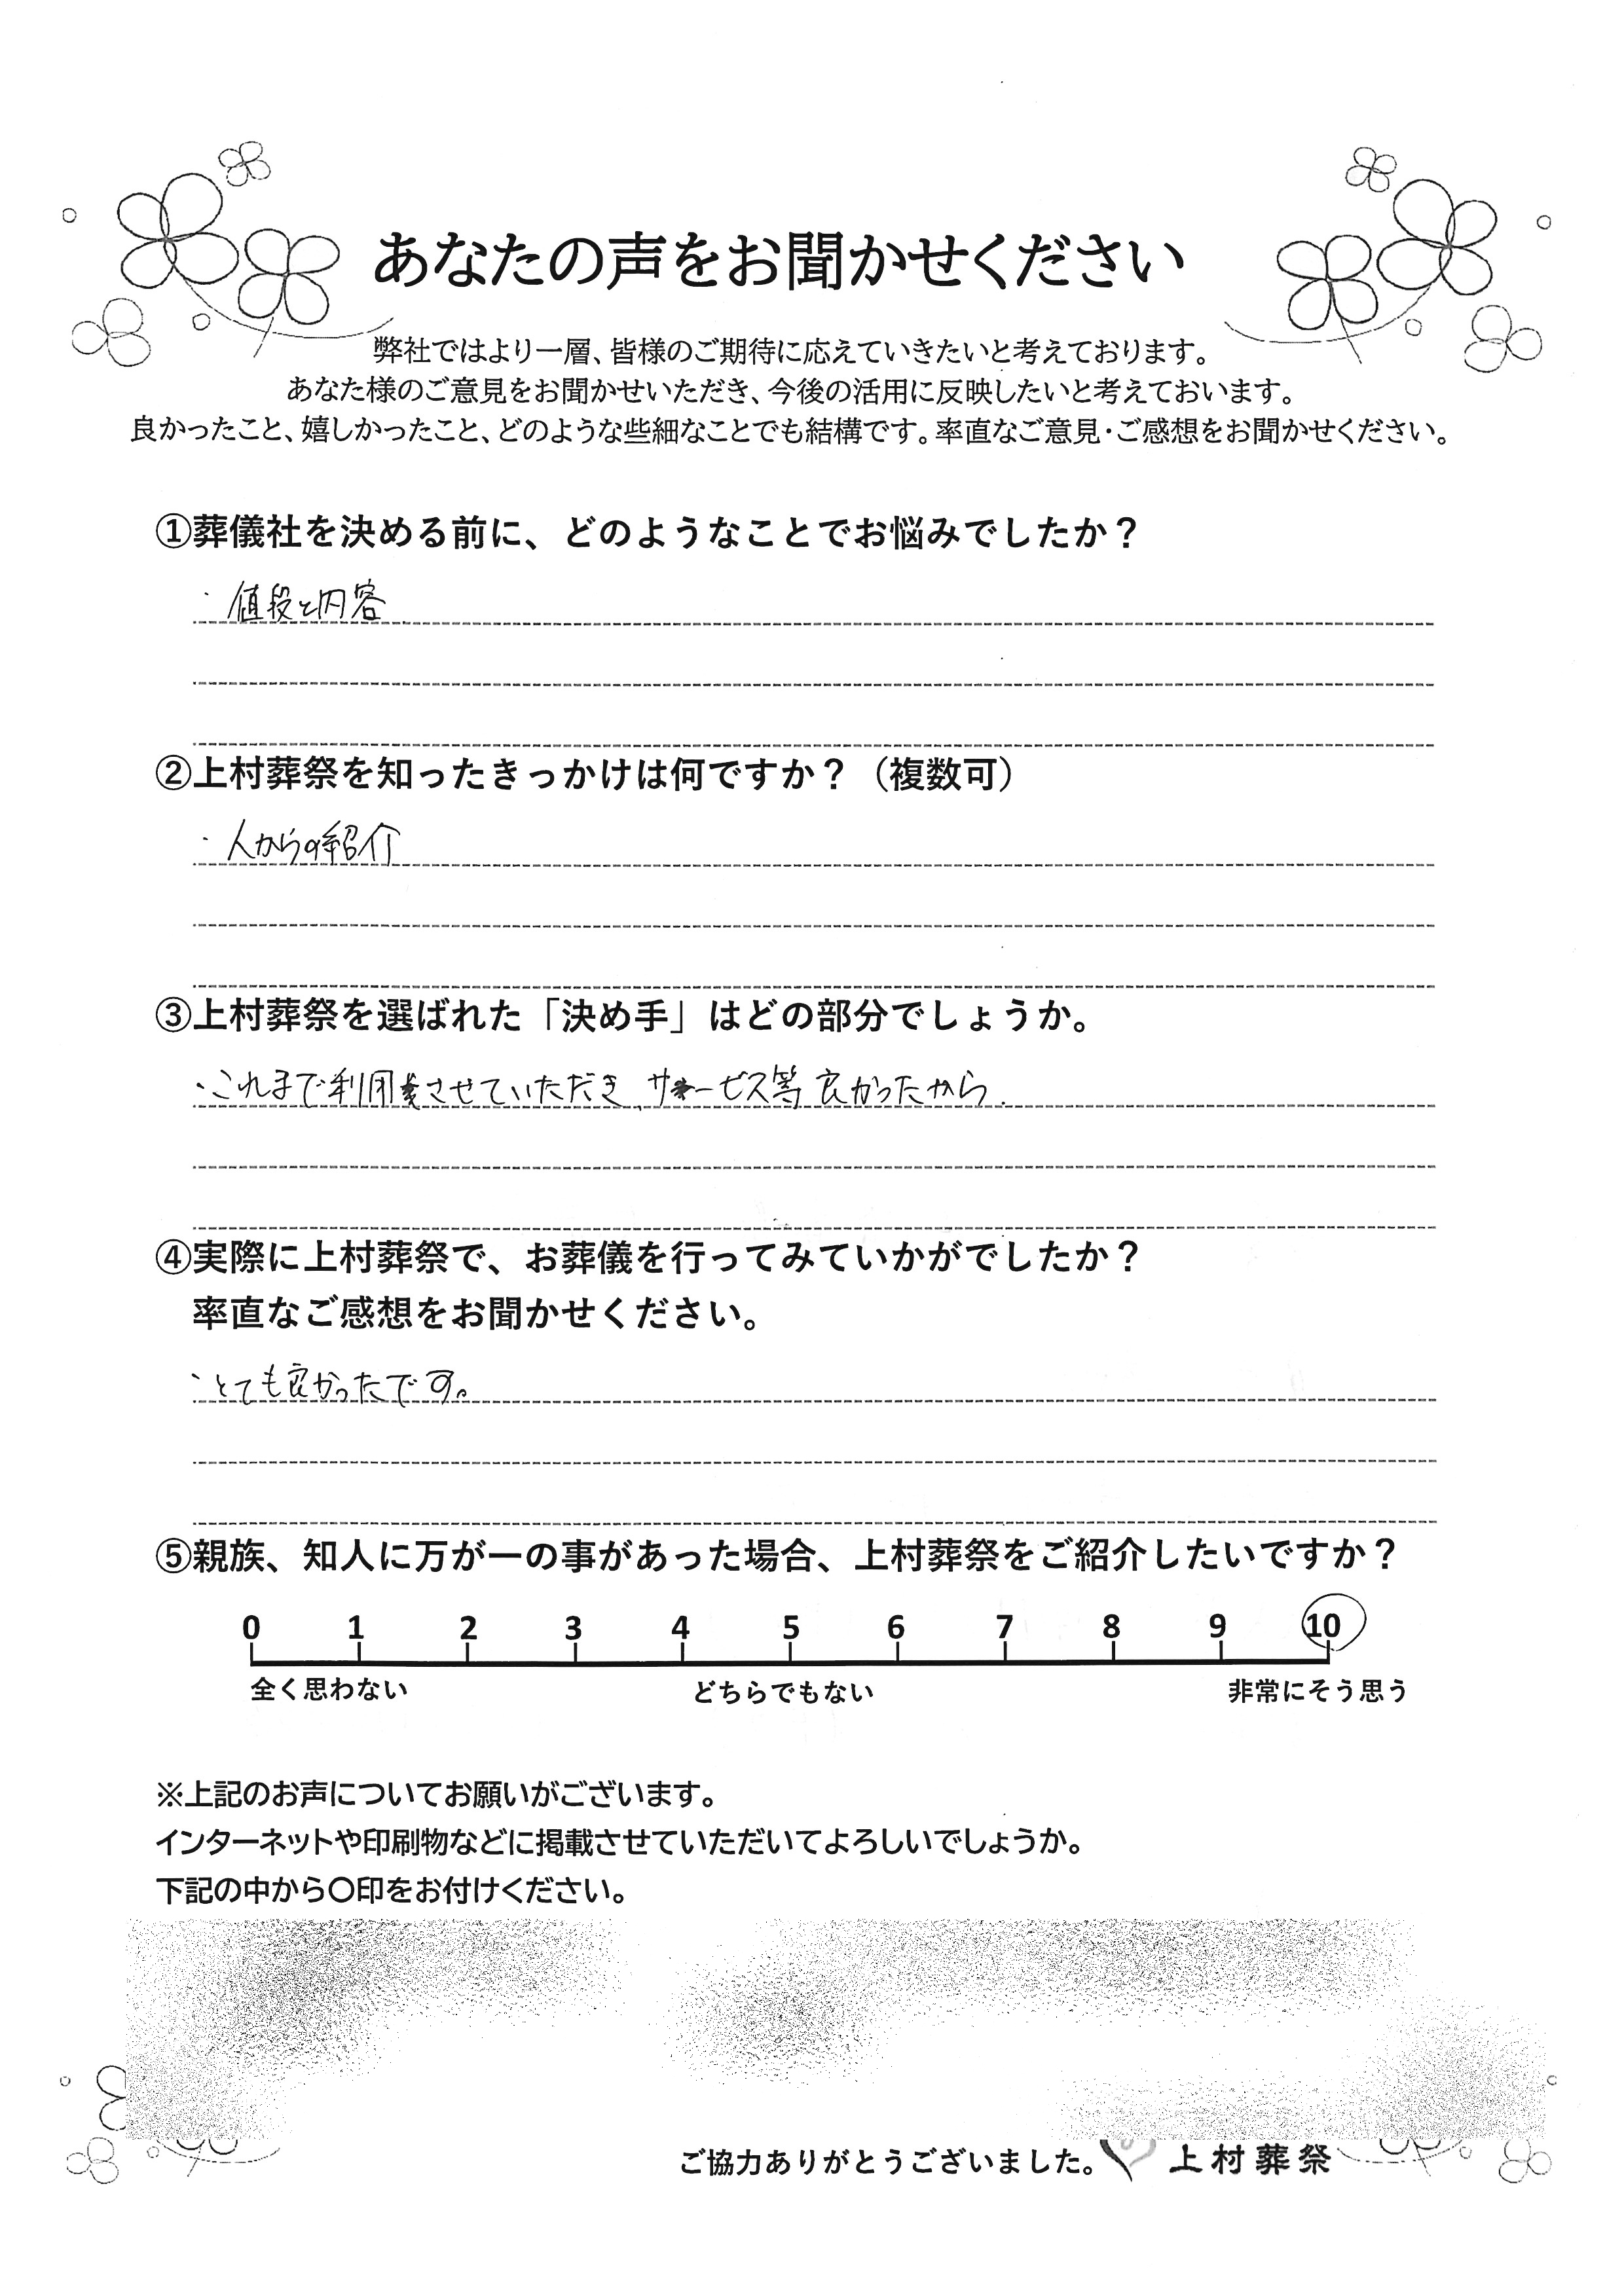 あなたの声をお聞かせください
弊社ではより一層、皆様のご期待に応えていきたいと考えております。
あなた様のご意見をお聞かせいただき、今後の活用に反映したいと考えておいます。
良かったこと、嬉しかったこと、どのような些細なことでも結構です。率直なご意見・ご感想をお聞かせください。
①葬儀社を決める前に、どのようなことでお悩みでしたか？
・値段と内容
②上村葬祭を知ったきっかけは何ですか？（複数可）
・人からの紹介
③上村葬祭を選ばれた「決め手」はどの部分でしょうか。
・これまで利用させていただき、サービス等良かったから.
④実際に上村葬祭で、お葬儀を行ってみていかがでしたか？
率直なご感想をお聞かせください。
・とても良かったです。
⑤親族、知人に万が一の事があった場合、上村葬祭をご紹介したいですか？
0 1 2 3 4 5 6 7 8 9 10
全く思わない どちらでもない 非常にそう思う
※上記のお声についてお願いがございます。
インターネットや印刷物などに掲載させていただいてよろしいでしょうか。
下記の中から〇印をお付けください。
ご協力ありがとうございました。 上村葬祭